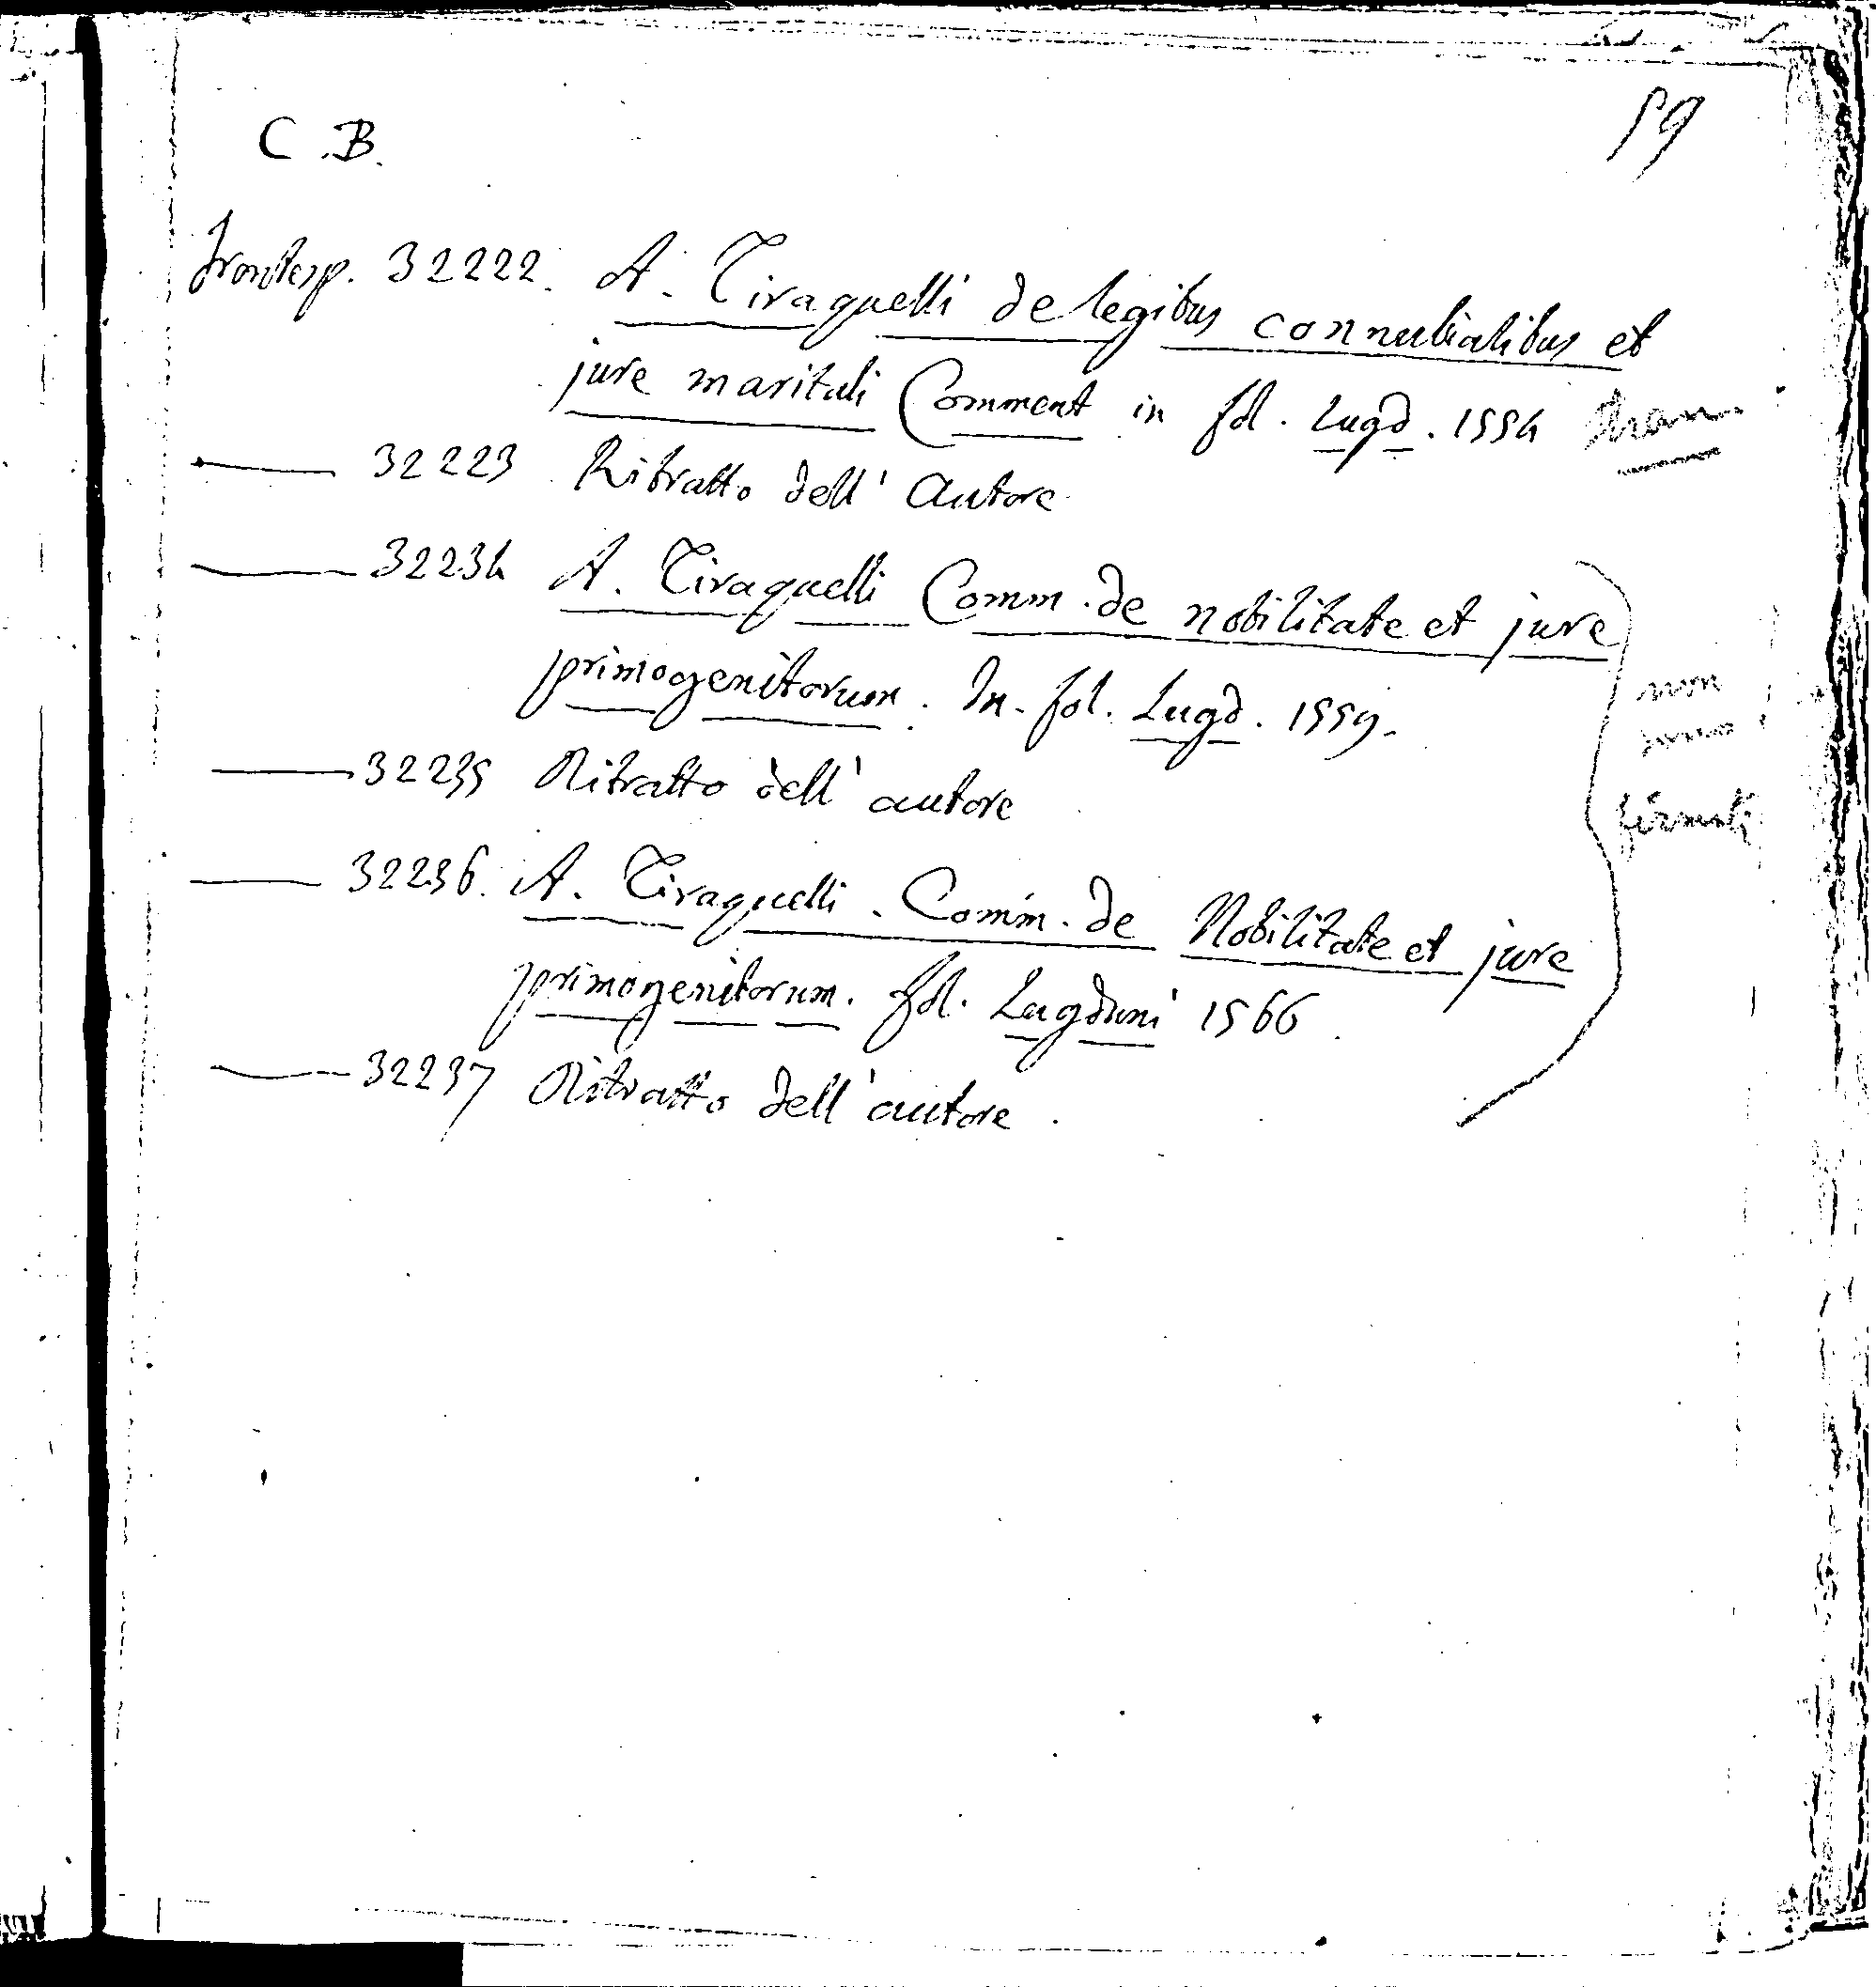 59
C.B.
Frontesp. 32222. A. Tiraquelli de legibus connubialibus et
jure maritali Comment in fol. Lugd. 1554
—— 32223 Ritratto dell' Autore
—— 32234 A. Tiraquelli Comm. de nobilitate et jure
primogenitorum. In. fol. Lugd. 1559.
—— 32235 Ritratto dell' autore
—— 32236. A. Tiraquelli. Comm. de Nobilitate et jure
primogenitorum. fol. Lugduni 1566.
—— 32237 Ritratto dell' autore.
non
sono
firmati